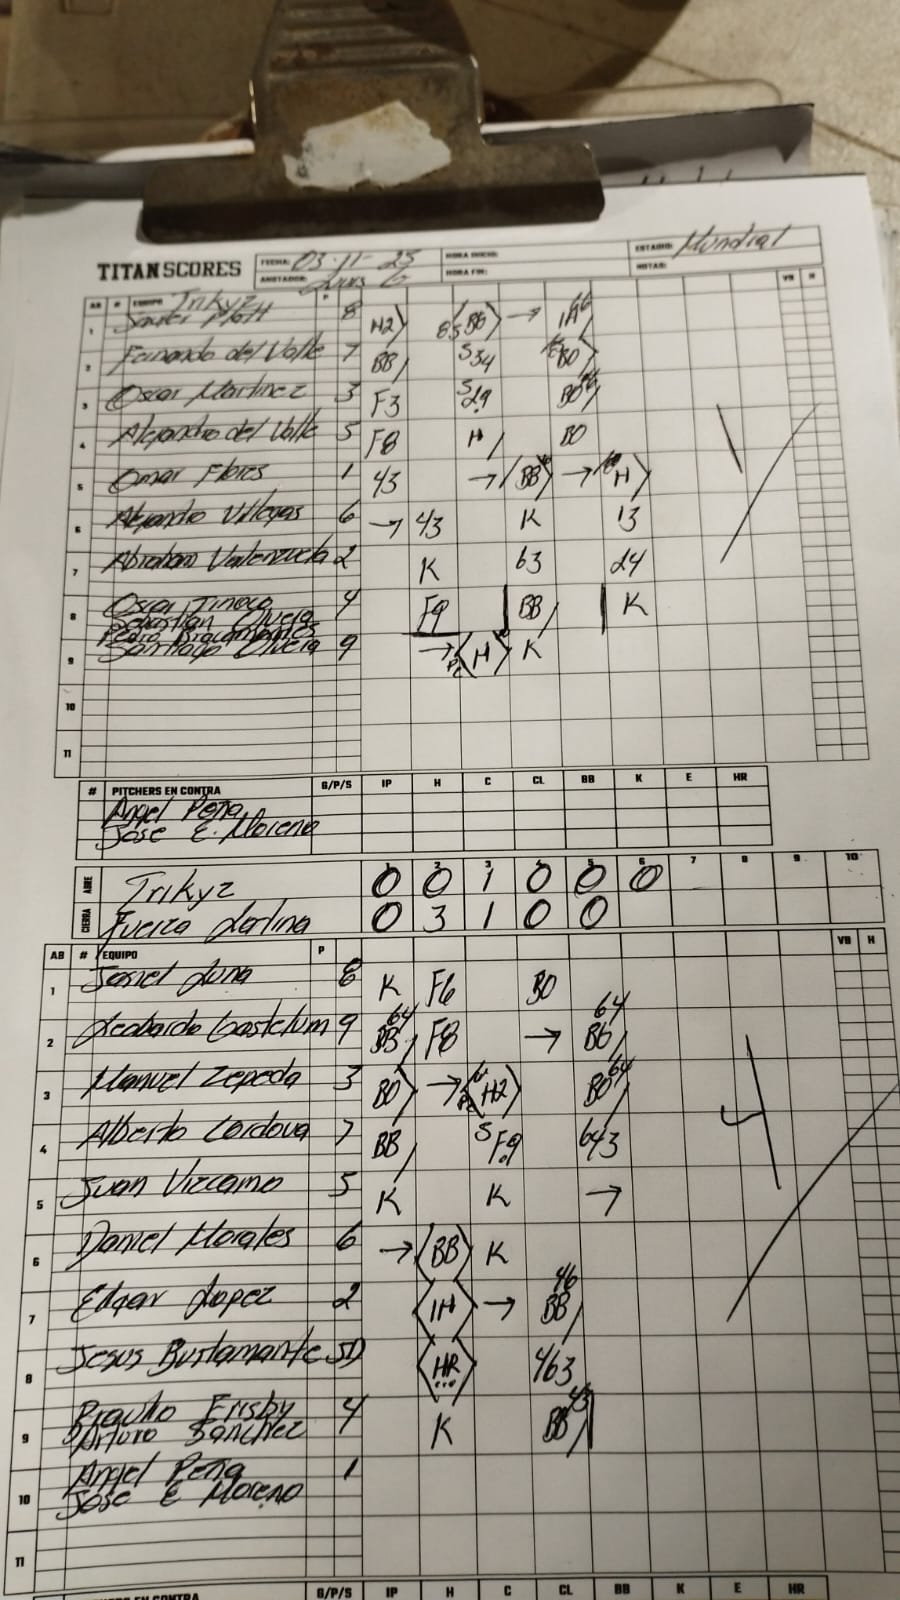 TITAN SCORES
FECHA: 03-11-25 HORA INICIO: ESTADIO: Mundial
ANOTADOR: Luis G HORA FIN: NOTAS:
AB # EQUIPO Trikyz P VB H
1 8 H2 BB → 1H
2 Fernando del Valle 7 BB S34 BO
3 Oscar Martinez 3 F3 BO
4 Alejandro del Valle 5 F8 H BO
5 Omar Flores 1 43 → BB → H
6 Alejandro Villegas 6 → 43 K 13
7 Abraham Valenzuela 2 K 63 24
8 Oscar Tinoco 4 F9 BB K
Sebastian Olvera
Pedro Bracamontes
9 Santiago Olvera 9 → H K
10
11
# PITCHERS EN CONTRA G/P/S IP H C CL BB K E HR
Angel Peña
Jose E. Moreno
1 2 3 4 5 6 7 8 9 10
ABRE Trikyz 0 0 1 0 0 0
CIERRA Fuerza Latina 0 3 1 0 0
AB # EQUIPO P VB H
1 Luna 8 K F6 BO
2 Leobardo Gastelum 9 BB 64 F8 → 64
3 Manuel Zepeda 3 BO → H2 BO 64
4 Alberto Cordova 7 BB S F9 643
5 Juan Vizcarno 5 K K →
6 Daniel Morales 6 → BB K
7 Edgar Lopez 2 1H → BB 46
8 Jesus Bustamante HR 463
9 Braulio Frisby 4 K BB
Arturo Sanchez
10 Angel Peña 1
Jose E Moreno
11
EN CONTRA G/P/S IP H C CL BB K E HR